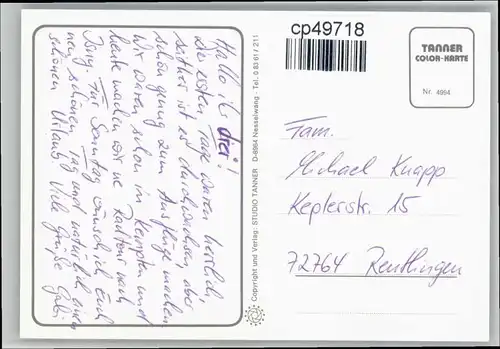 Hallo ihr drei!
Die ersten Tage waren herrlich,
seither ist es durchwachsen, aber
schön genug zum Ausflüge machen.
Wir waren schon in Kempten und
heute machen wir ne Radtour nach
Isny. Für Sonntag wünsch ich Euch
nen schönen Tag und natürlich einen
schönen Urlaub! Viele Grüße Gabi
Copyright und Verlag: STUDIO TANNER D-8964 Nesselwang - Tel. 0 83 61 / 211
cp49718
TANNER
COLOR-KARTE
Nr. 4994
Fam.
Michael Knapp
Keplerstr. 15
72764 Reutlingen